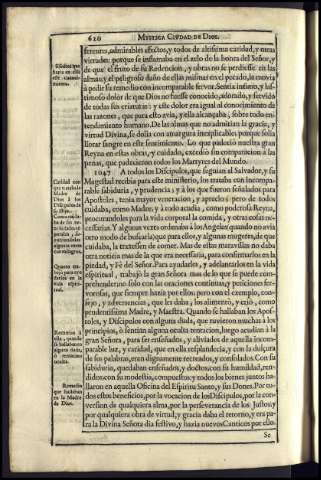 620 MYSTICA CIUDAD DE DIOS.
feruete, admirables efectos, y todos de altissima caridad, y otras
virtudes: porque se inflamaba en el zelo de la honra del Señor, y
de que el fruto de su Redencion, y obras no se perdiesse en las
almas; y el peligroso daño de ellas mismas en el pecado, la movia
à pedir su remedio con incomparable fervor. Sentia infinito, y las-
timoso dolor de que Dios no fuesse conocido, adorado, y servido
de todas sus criaturas: y este dolor era igual al conocimiento de
las razones, que para esto avia, y ella alcançaba, sobre todo en-
tendimiento humano. De las almas que no admitian la gracia, y
virtud Divina, se dolia con amargura inexplicable: porque solia
llorar sangre en este sentimiento. Lo que padeciò nuestra gran
Reyna en estas obras, y cuidado, excediò sin comparacion à las
penas, que padecieron todos los Martyres del Mundo.
1047 A todos los Discipulos, que seguian al Salvador, y su
Magestad recibia para este ministerio, los trataba con incompa-
rable sabiduria, y prudencia; y à los que fueron señalados para
Apostoles, tenia mayor veneracion, y aprecio; pero de todos
cuidaba, como Madre, y à todo acudia, como poderosa Reyna,
procurandoles para la vida corporal la comida, y otras cosas ne-
cessarias. Y algunas vezes ordenaba à los Angeles (quando no avia
otro modo de buscarla) que para ellos, y algunas mugeres, de que
cuidaba, la traxessen de comer. Mas de estas maravillas no daba
otra noticia mas de la que era necessaria, para confirmarlos en la
piedad, y Fè del Señor. Para ayudarlos, y adelantarlos en la vida
espiritual, trabajò la gran Señora mas de lo que se puede com-
prehender: no solo con las oraciones continuas, y peticiones fer-
vorosas, que siempre hazia por ellos; pero con el exemplo, con-
sejo, y advertencias, que les daba, los alimentò, y criò, como
prudentissima Madre, y Maestra. Quando se hallaban los Apos-
toles, y Discipulos con alguna duda, que tuvieron muchas à los
principios, ò sentian alguna oculta tentacion, luego acudian à la
gran Señora, para ser enseñados, y aliviados de aquella incom-
parable luz, y caridad, que en ella resplandecia; y con la dulçura
de sus palabras, eran dignamente recreados, y consolados. Con su
sabiduria, quedaban enseñados, y doctos; con su humildad, ren-
didos; con su modestia, compuestos; y todos los bienes juntos ha-
llaron en aquella Oficina del Espiritu Santo, y sus Dones. Por to-
dos estos beneficios, por la vocacion de los Discipulos, por la con-
version de qualquiera alma, por la perseverancia de los Justos, y
por qualquiera obra de virtud, y gracia daba el retorno, y era pa-
ra la Divina Señora dia festivo, y hazia nuevos Canticos por ello.
Se